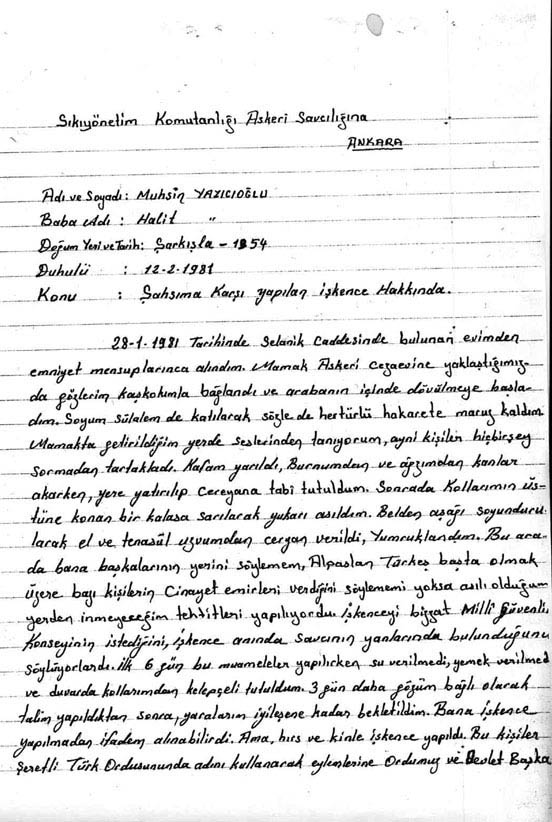 Sıkıyönetim Komutanlığı Askeri Savcılığına
ANKARA
Adı ve Soyadı : Muhsin YAZICIOĞLU
Baba Adı : Halit "
Doğum Yeri ve Tarih : Şarkışla - 1954
Duhulü : 12-2-1981
Konu : Şahsıma Karşı yapılan işkence Hakkında.
28-1-1981 Tarihinde Selanik Caddesinde bulunan evimden
emniyet mensuplarınca alındım. Mamak Askeri Cezaevine yaklaştığımız-
da gözlerim kaşkolumla bağlandı ve arabanın içinde dövülmeye başla-
dım. Soyum sülalem de katılarak sözle de hertürlü hakarete maruz kaldım.
Mamakta getirildiğim yerde seslerinden tanıyorum, ayni kişiler hiçbirşey
sormadan tartakladı. Kafam yarıldı, Burnumdan ve ağzımdan kanlar
akarken, yere yatırılıp Cereyana tabi tutuldum. Sonrada Kollarımın üs-
tüne konan bir kalasa sarılarak yukarı asıldım. Belden aşağı soyunduru-
larak el ve tenasül uzvumdan ceryan verildi, Yumruklandım. Bu ara-
da bana başkalarının yerini söylemem, Alpaslan Türkeş başta olmak
üzere bazı kişilerin Cinayet emirleri verdiğini söylememi yoksa asılı olduğum
yerden inmeyeceğim tehtitleri yapılıyordu. işkenceyi bizzat Milli Güvenlik
Konseyinin istediğini, işkence anında savcının yanlarında bulunduğunu
söylüyorlardı. ilk 6 gün bu muameleler yapılırken su verilmedi, yemek verilmed
ve duvarda kollarımdan kelepçeli tutuldum. 3 gün daha gözüm bağlı olarak
talim yapıldıktan sonra, yaraların iyileşene kadar bekletildim. Bana işkence
yapılmadan ifadem alınabilirdi. Ama, hırs ve kinle işkence yapıldı. Bu kişiler
Şerefli Türk Ordusununda adını kullanarak eylemlerine Ordumuz ve Devlet Başka